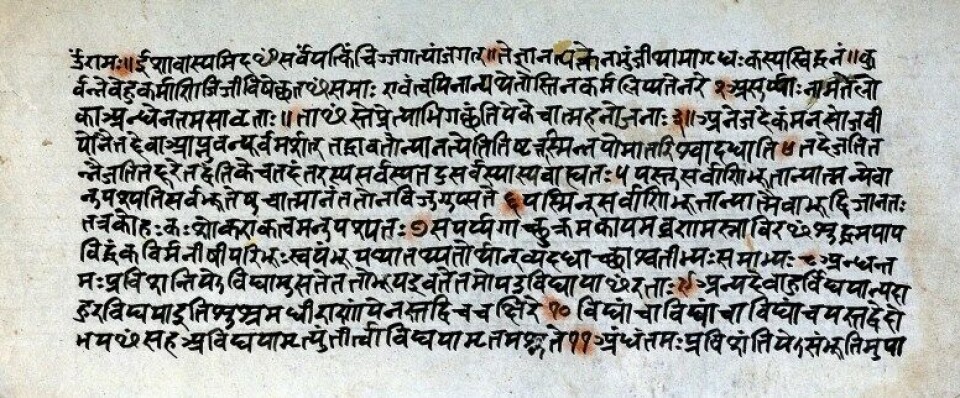 उँरामः॥ईशावास्यमिदꣳसर्वंयत्किंचिज्जगत्यांजगत्॥तेनत्यक्तेनभुंजीथामागृधःकस्यस्विद्धनं॥कु
र्वन्नेवेहकर्माणिजिजीविषेछतꣳसमाः एवंत्वयिनान्यथेतोस्तिनकर्मलिप्यतेनरे २असुर्य्याःनामतेलो
काअन्धेनतमसावृताः॥ताꣳस्तेप्रेत्याभिगछंतियेकेचात्महनोजनाः३॥अनेजदेकंमनसोजवी
योनैतद्देवाआप्नुवन्पूर्वमर्शत् तद्धावतोन्यानत्येतितिष्टत्तस्मिन्नपोमातरिश्वादधाति४तदेजतित
न्नैजतितद्दूरेतद्वंतिकेचतदंतरस्यसर्वस्यतदुसर्वस्यास्यबाह्यतः५यस्तुसर्वाणिभूतान्यात्मन्येवा
नुपश्यतिसर्वभूतेषुचात्मानंततोनविजुगुप्सते६यस्मिन्सर्वाणिभूतान्यात्मैवाभूद्विजानतः
तत्रकोहःकःशोकएकत्वमनुपश्यतः७सपर्य्यगाच्छुक्रमकायमव्रणमस्नाविरꣳशुद्धमपाप
विद्धंकविर्मनीषीपरिभूःस्वयंभूर्याथातथ्यतोर्थान्व्यदधाच्छाश्वतीभ्यःसमाभ्यः८अन्धन्त
मःप्रविशन्तियेविद्यामुपासतेततोभूयइवतेतमोयउविद्यायाꣳरताः९अन्यदेवाहुर्विद्ययान्यदा
हुरविद्ययाइतिशुश्रुमधीराणांयेनस्तद्विचचक्षिरे१०विद्यांचाविद्यांचयस्तद्वेदो
भयꣳसहअविद्ययामृत्युंतीर्त्वाविद्ययामृतमश्नुते११अंधंतमःप्रविशंतियेसंभूतिमुपा